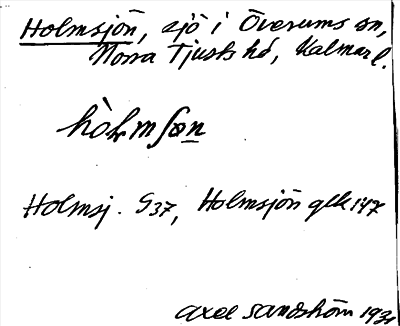 Holmsjön, sjö i Överums sn,
Norra Tjusts hd, Kalmar l.
hòlmʃøn
Holmsj. S37, Holmsjön glk 1417
Axel Sandström 193